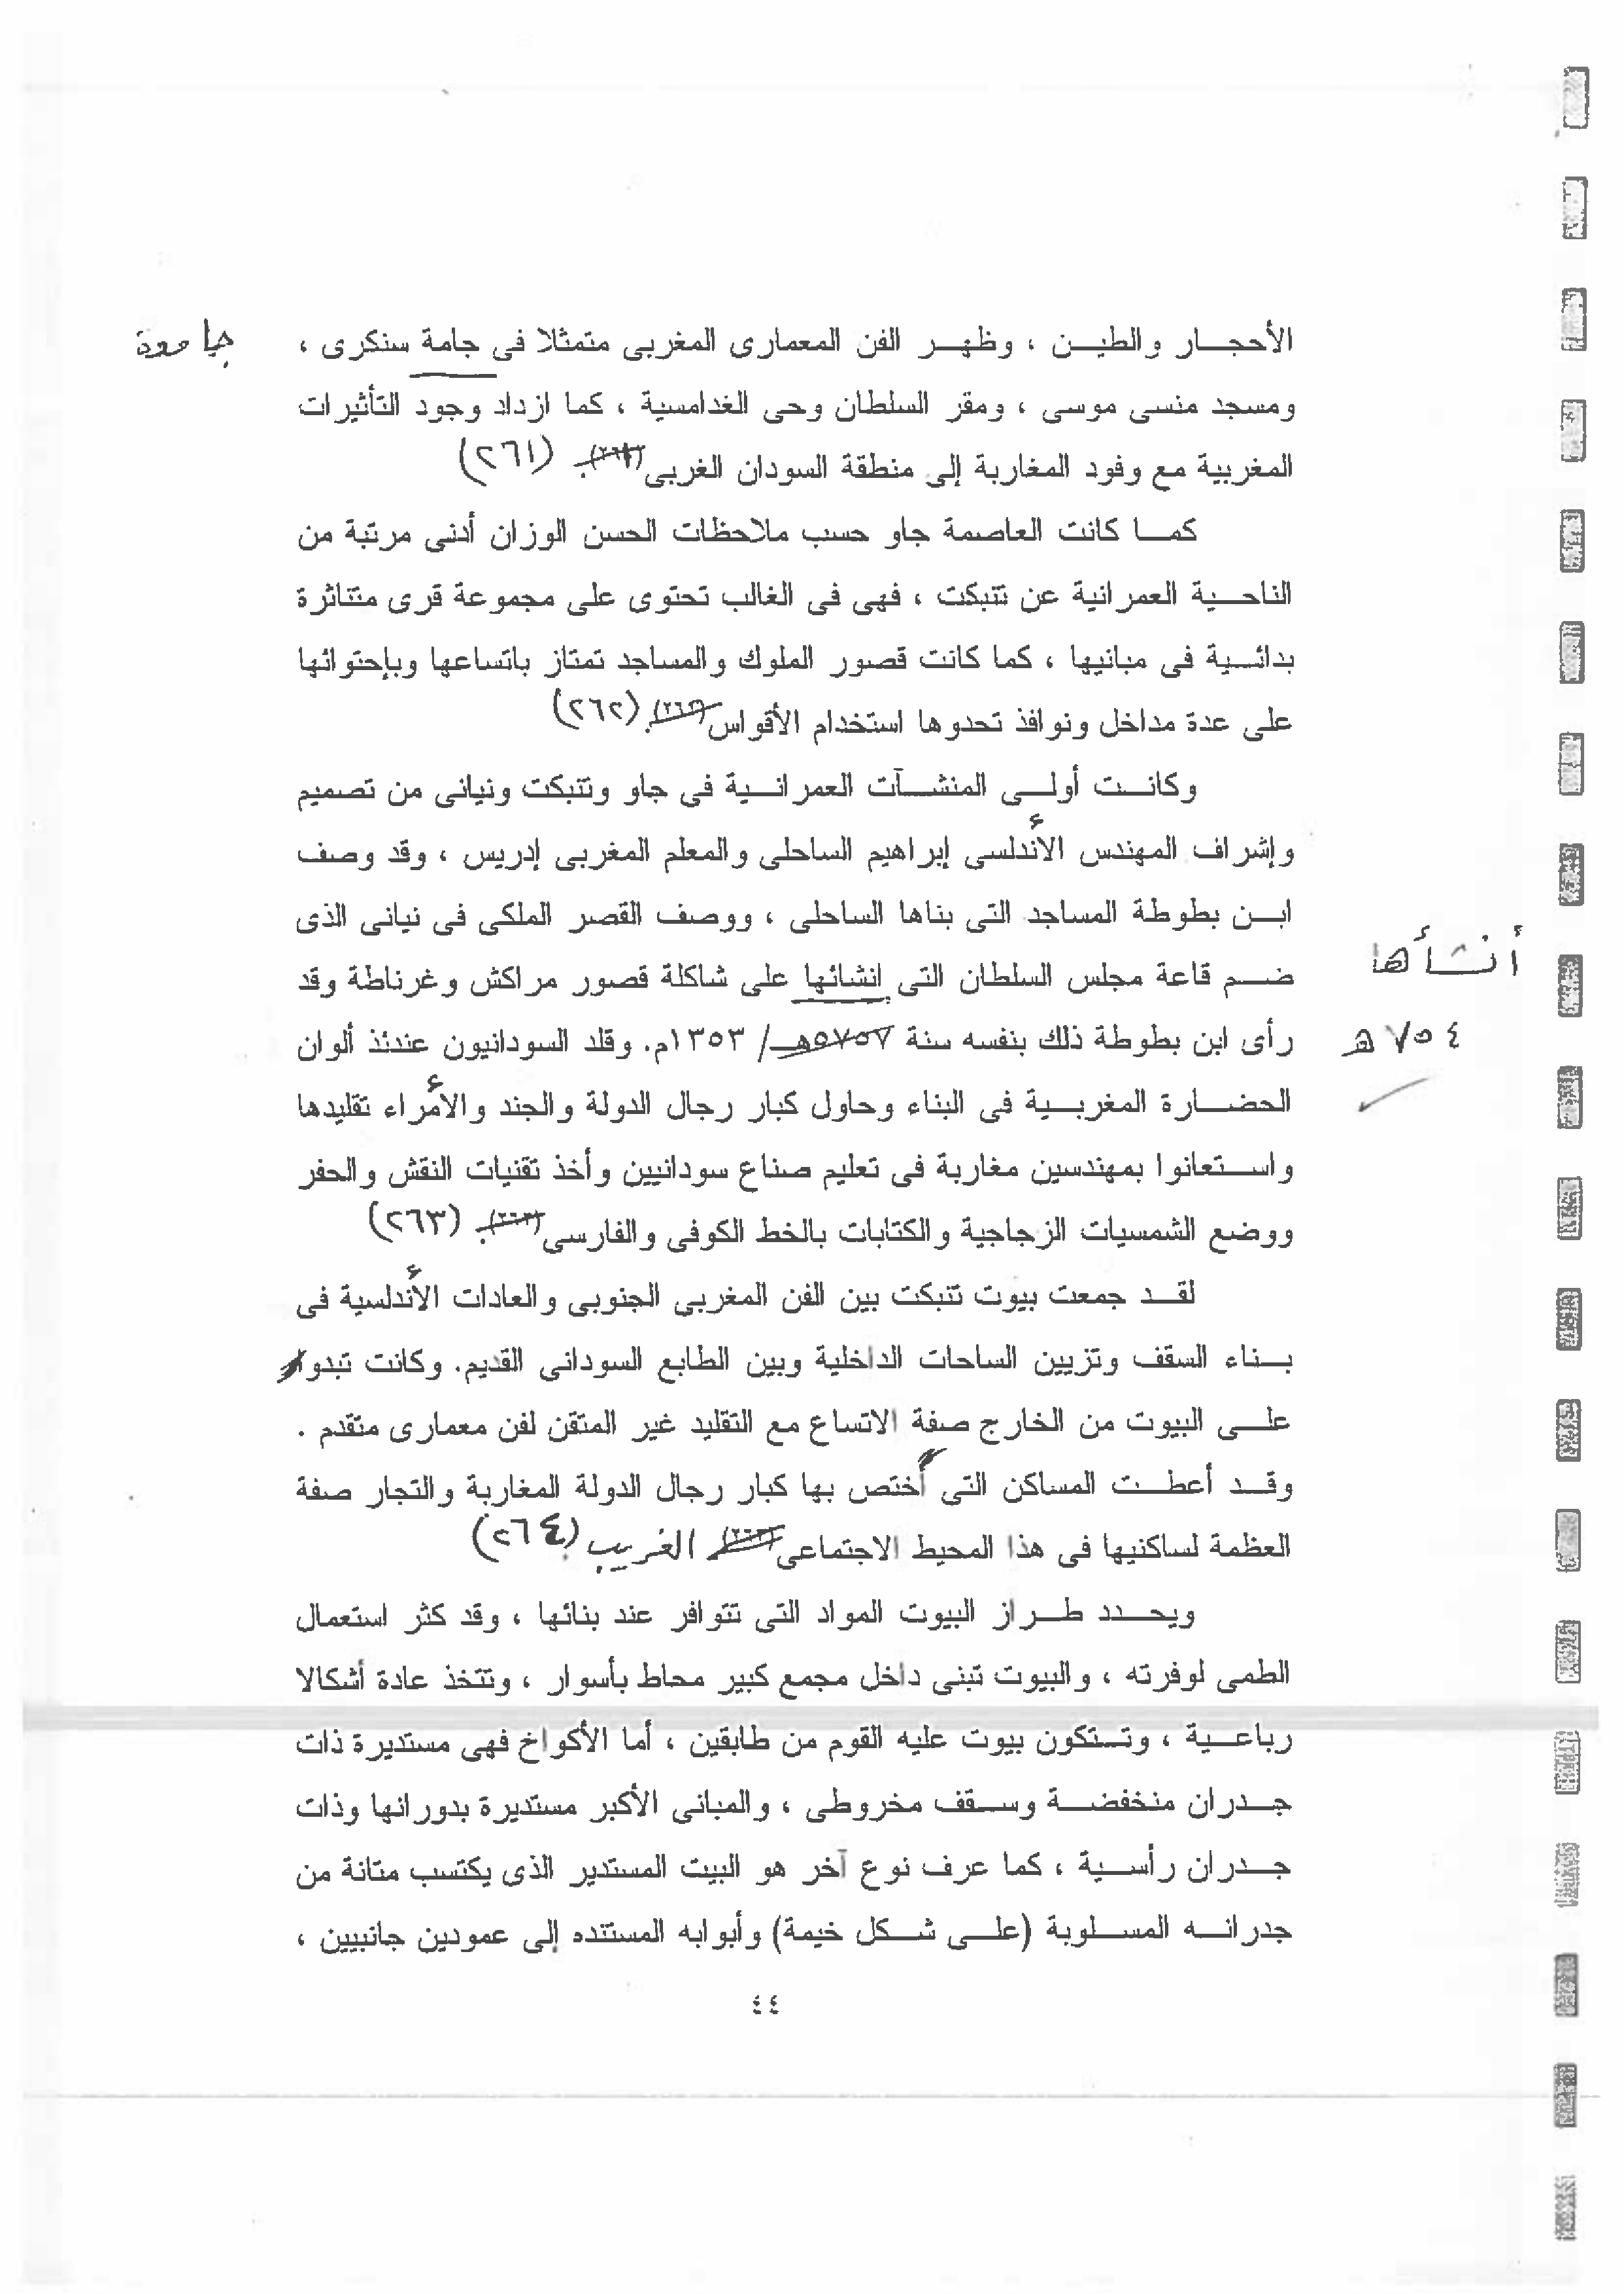 الأحجار والطين ، وظهر الفن المعمارى المغربى متمثلا فى جامة سنكرى ، جامعة
ومسجد منسى موسى ، ومقر السلطان وحى الغدامسية ، كما ازداد وجود التأثيرات
المغربية مع وفود المغاربة إلى منطقة السودان الغربى (٢٦١)
كما كانت العاصمة جاو حسب ملاحظات الحسن الوزان أدنى مرتبة من
الناحية العمرانية عن تنبكت ، فهى فى الغالب تحتوى على مجموعة قرى متناثرة
بدائية فى مبانيها ، كما كانت قصور الملوك والمساجد تمتاز باتساعها وبإحتوائها
على عدة مداخل ونوافذ تحدوها استخدام الأقواس(٢٦٢). (٢٦٢)
وكانت أولى المنشآت العمرانية فى جاو وتنبكت ونيانى من تصميم
وإشراف المهندس الأندلسى إبراهيم الساحلى والمعلم المغربى إدريس ، وقد وصف
ابن بطوطة المساجد التى بناها الساحلى ، ووصف القصر الملكى فى نيانى الذى
أنشأها
ضم قاعة مجلس السلطان التى انشائها على شاكلة قصور مراكش وغرناطة وقد
٧٥٤ هـ
رأى ابن بطوطة ذلك بنفسه سنة ٧٥٧هـ/ ١٣٥٣م. وقلد السودانيون عندئذ ألوان
الحضارة المغربية فى البناء وحاول كبار رجال الدولة والجند والأمراء تقليدها
واستعانوا بمهندسين مغاربة فى تعليم صناع سودانيين وأخذ تقنيات النقش والحفر
ووضع الشمسيات الزجاجية والكتابات بالخط الكوفى والفارسى(٢٦٣). (٢٦٣)
لقد جمعت بيوت تنبكت بين الفن المغربى الجنوبى والعادات الأندلسية فى
بناء السقف وتزيين الساحات الداخلية وبين الطابع السودانى القديم. وكانت تبدوا
على البيوت من الخارج صفة الاتساع مع التقليد غير المتقن لفن معمارى متقدم .
وقد أعطت المساكن التى أختص بها كبار رجال الدولة المغاربة والتجار صفة
العظمة لساكنيها فى هذا المحيط الاجتماعى الغريب (٢٦٤)
ويحدد طراز البيوت المواد التى تتوافر عند بنائها ، وقد كثر استعمال
الطمى لوفرته ، والبيوت تبنى داخل مجمع كبير محاط بأسوار ، وتتخذ عادة أشكالا
رباعية ، وتتكون بيوت عليه القوم من طابقين ، أما الأكواخ فهى مستديرة ذات
جدران منخفضة وسقف مخروطى ، والمبانى الأكبر مستديرة بدورانها وذات
جدران رأسية ، كما عرف نوع آخر هو البيت المستدير الذى يكتسب متانة من
جدرانه المسلوبة (على شكل خيمة) وأبوابه المستنده إلى عمودين جانبيين ،
٤٤